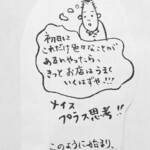 初日に
これだけ色々なことが
あるんやったら、
きっとお店はうまく
いくはずや!!!
ナイス
プラス思考!!
このように始まり、